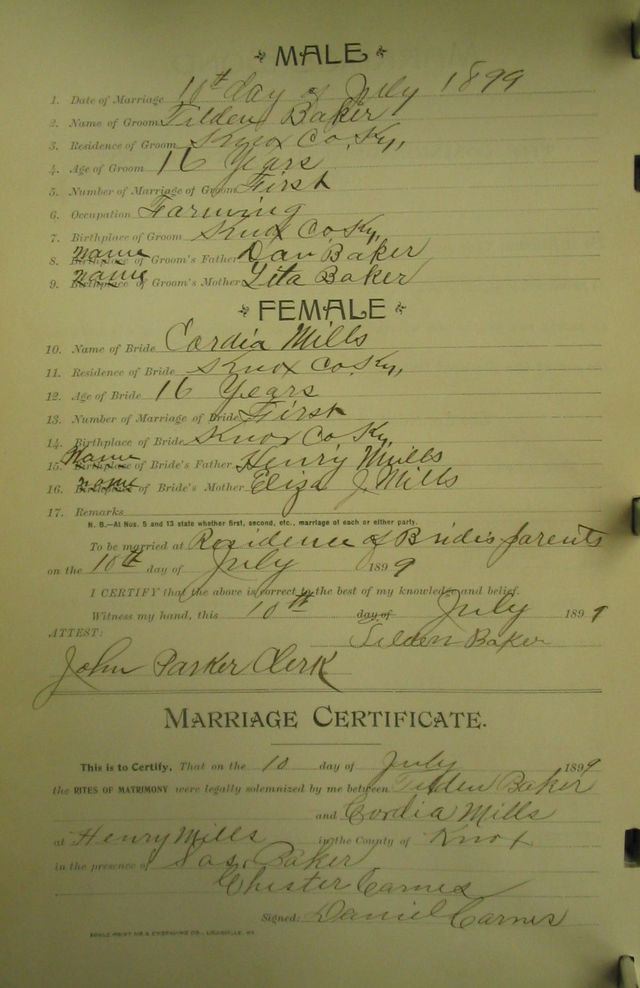 MALE
1. Date of Marriage 10th day of July 1899
2. Name of Groom Tilden Baker
3. Residence of Groom Knox Co. Ky,
4. Age of Groom 16 Years
5. Number of Marriage of Groom First
6. Occupation Farming
7. Birthplace of Groom Knox Co. Ky,
8. Birthplace name of Groom's Father Dan Baker
9. Birthplace name of Groom's Mother Lita Baker
FEMALE
10. Name of Bride Cordia Mills
11. Residence of Bride Knox Co. Ky,
12. Age of Bride 16 Years
13. Number of Marriage of Bride First
14. Birthplace of Bride Knox Co. Ky,
15. Birthplace Name of Bride's Father Henry Mills
16. Birthplace name of Bride's Mother Eliza J Mills
17. Remarks
N. B.—At Nos. 5 and 13 state whether first, second, etc., marriage of each or either party.
To be married at Residence of Brides parents
on the 10th day of July 1899
I CERTIFY that the above is correct to the best of my knowledge and belief.
Witness my hand, this 10th day of July 1899
Tilden Baker
ATTEST:
John Parker Clerk
MARRIAGE CERTIFICATE.
This is to Certify, That on the 10 day of July 1899
the RITES OF MATRIMONY were legally solemnized by me between Tilden Baker
and Cordia Mills
at Henry Mills in the County of Knox
in the presence of Baker
Chister Carnes
Signed: Daniel Carnes